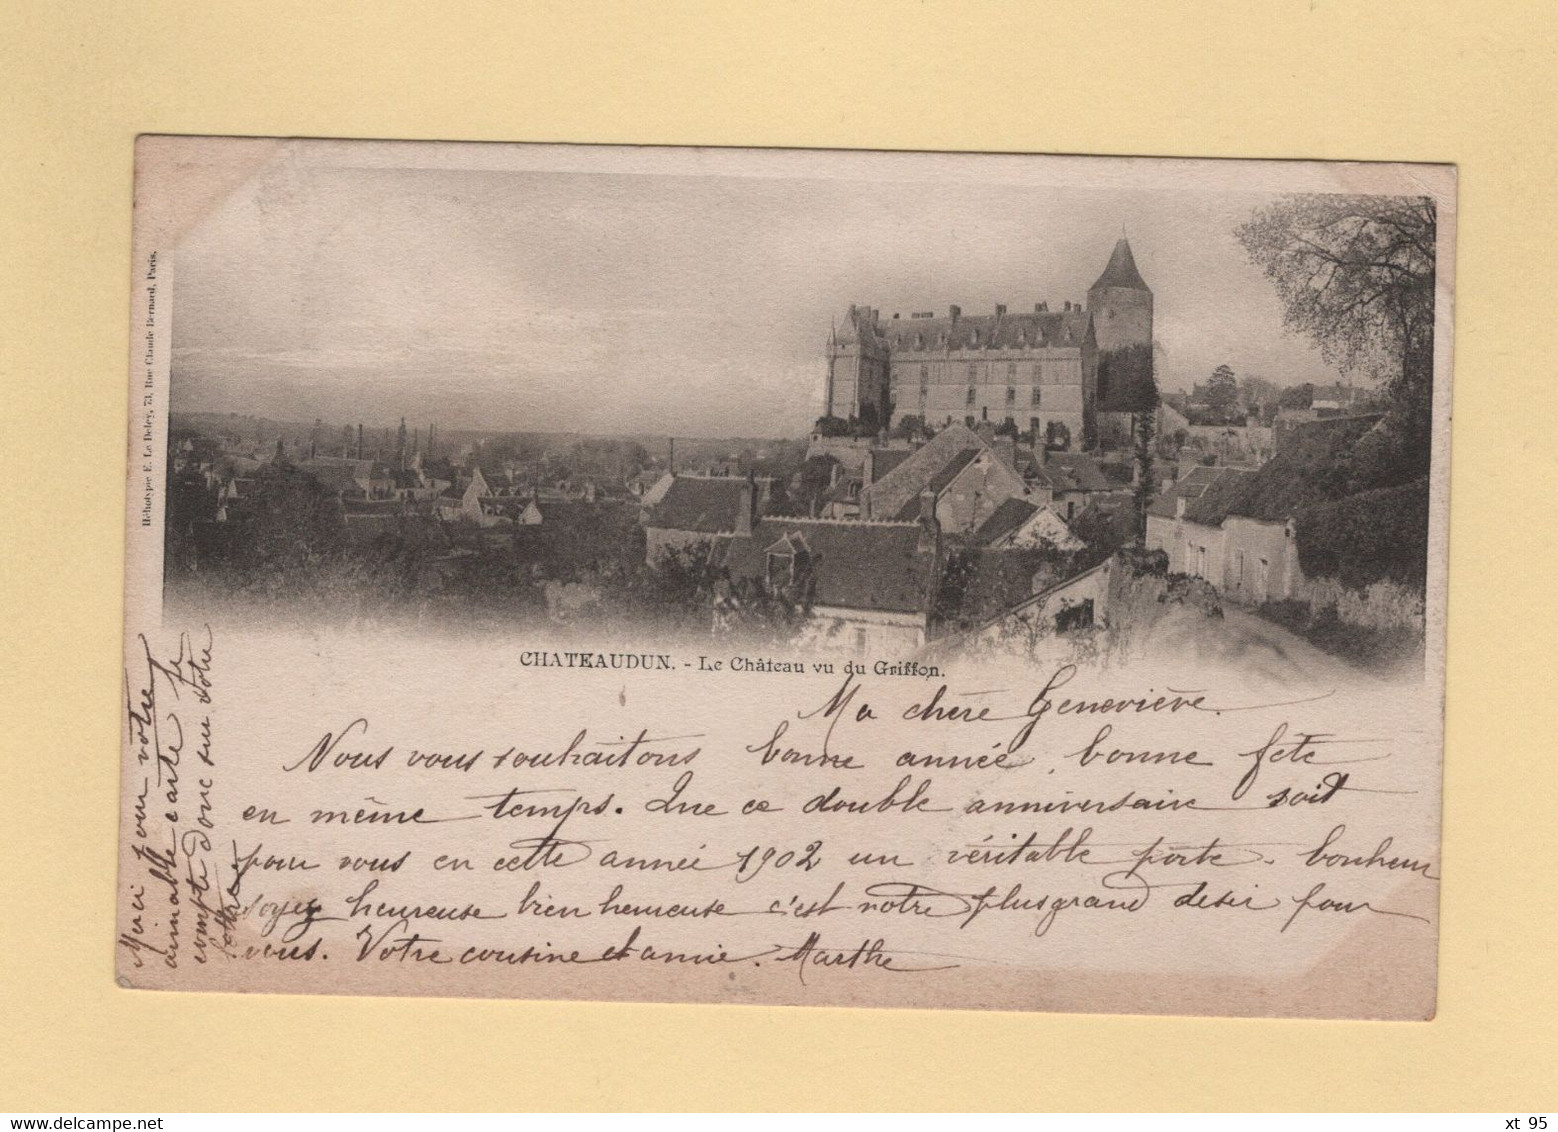 Héliotypie E. Le Deley, 73, Rue Claude Bernard, Paris.
CHATEAUDUN. - Le Château vu du Griffon.
Ma chère Geneviève.
Nous vous souhaitons bonne année, bonne fête
en même temps. Que ce double anniversaire soit
pour vous en cette année 1902 un véritable porte-bonheur
soyez heureuse bien heureuse c'est notre plus grand désir pour
vous. Votre cousine et amie. Marthe
Merci pour votre
aimable carte je
compte donc sur votre
lettre
xt 95